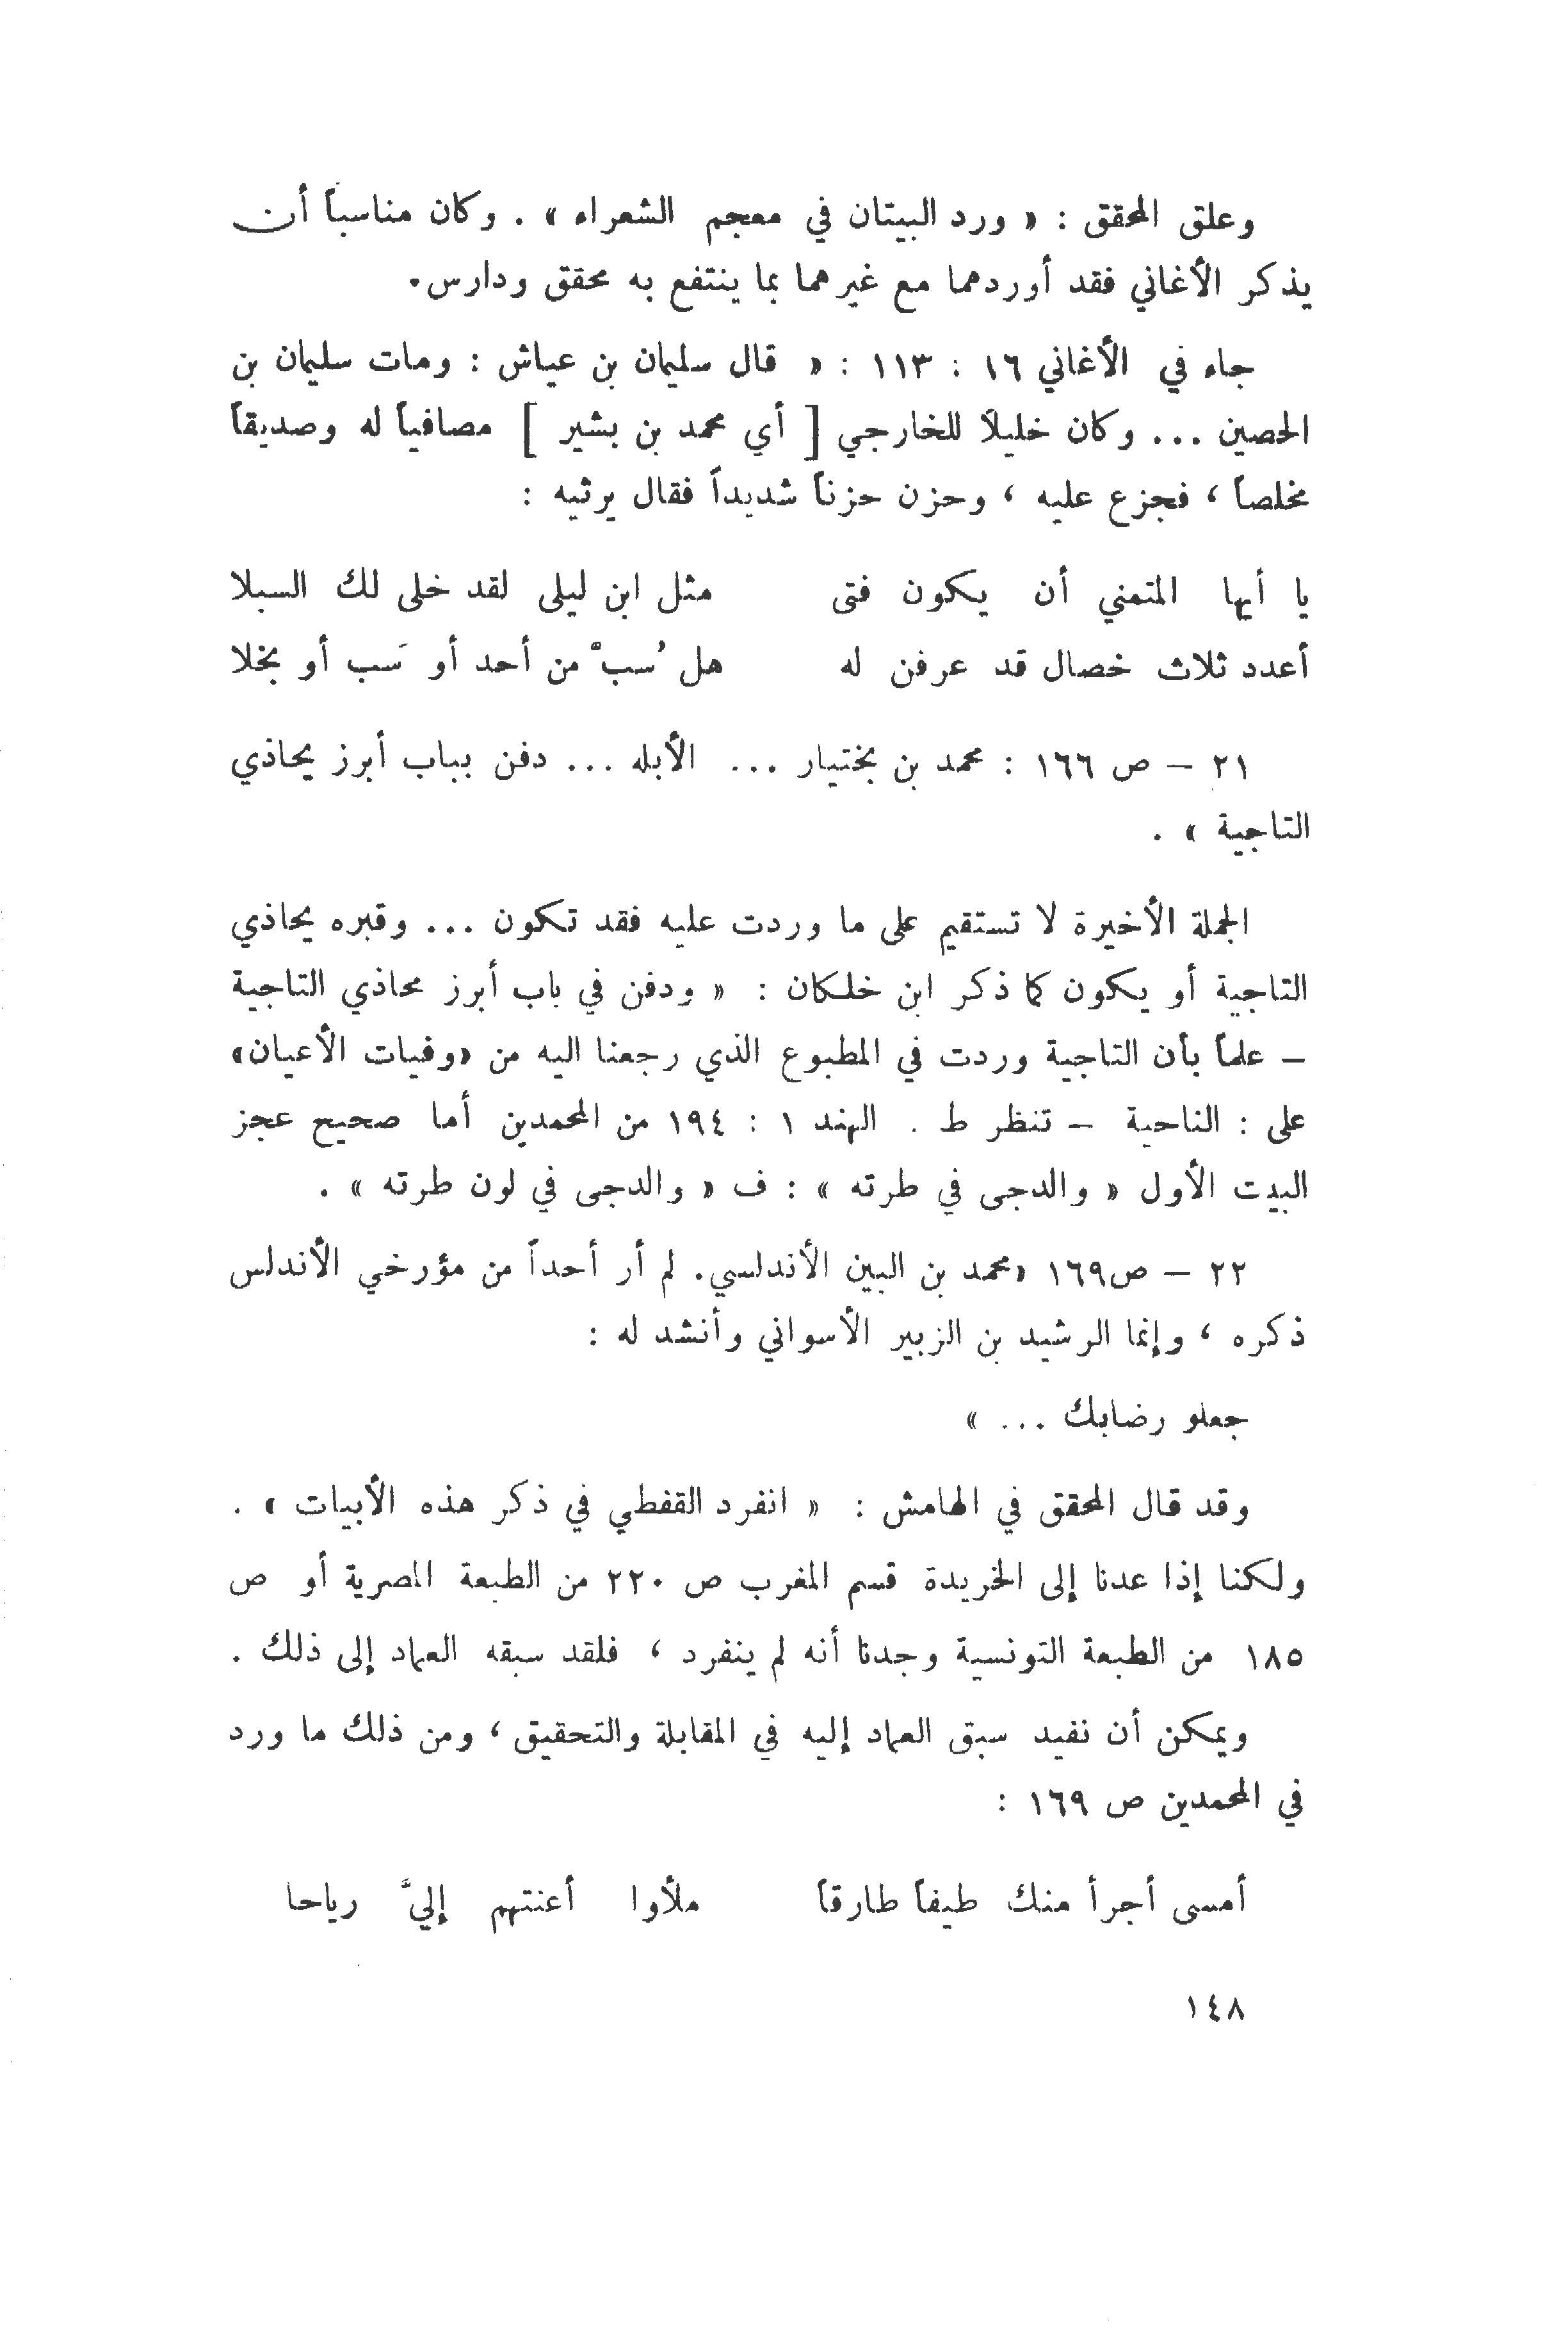 وعلق المحقق : « ورد البيتان في معجم الشعراء » . وكان مناسباً أن
يذكر الأغاني فقد أوردهما مع غيرهما بما ينتفع به محقق ودارس.
جاء في الأغاني ١٦ : ١١٣ : « قال سليمان بن عياش : ومات سليمان بن
الحصين ... وكان خليلاً للخارجي [ أي محمد بن بشير ] مصافياً له وصديقاً
مخلصاً ، فجزع عليه ، وحزن حزناً شديداً فقال يرثيه :
يا أيها المتمني أن يكون فتى مثل ابن ليلى لقد خلى لك السبلا
أعدد ثلاث خصال قد عرفن له هل سُبّ من أحد أو سَب أو بخلا
٢١ – ص ١٦٦ : محمد بن بختيار ... الأبله ... دفن بباب أبرز يحاذي
التاجية » .
الجملة الأخيرة لا تستقيم على ما وردت عليه فقد تكون ... وقبره يحاذي
التاجية أو يكون كما ذكر ابن خلكان : « ودفن في باب أبرز محاذي التاجية
– علماً بأن التاجية وردت في المطبوع الذي رجعنا اليه من «وفيات الأعيان»
على : الناحية – تنظر ط . الهند ١ : ١٩٤ من المحمدين أما صحيح عجز
البيت الأول « والدجى في طرته » : ف « والدجى في لون طرته » .
٢٢ – ص١٦٩ «محمد بن البين الأندلسي. لم أر أحداً من مؤرخي الأندلس
ذكره ، وإنما الرشيد بن الزبير الأسواني وأنشد له :
جعلو رضابك ... »
وقد قال المحقق في الهامش : « انفرد القفطي في ذكر هذه الأبيات » .
ولكنا إذا عدنا إلى الخريدة قسم المغرب ص ٢٢٠ من الطبعة المصرية أو ص
١٨٥ من الطبعة التونسية وجدنا أنه لم ينفرد ، فلقد سبقه العماد إلى ذلك .
ويمكن أن نفيد سبق العماد إليه في المقابلة والتحقيق ، ومن ذلك ما ورد
في المحمدين ص ١٦٩ :
أمسى أجرأ منك طيفاً طارقاً ملأوا أعنتهم إليَّ رياحا
١٤٨